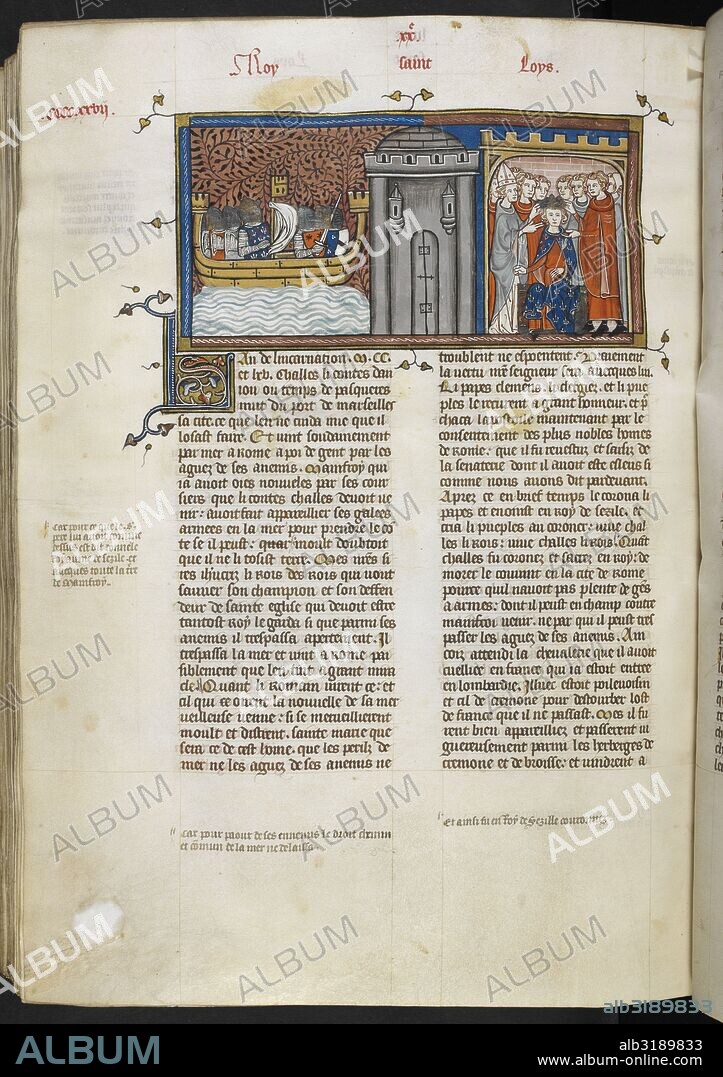 xxe
Roy saint Loys.
.cccc.xxvij.
An de lincarnation .M. CC.
et lxv. Challes li contes dan
iou ou temps de pasqueres
mut du port de marseilles
sa cite. ce que len ne cuida mie que il
losast faire. Et vint soudainement
par mer a Rome a poi de gent par les
aguez de ses anemis. Mainfroy qui
ia avoit oies nouveles par ses cour
siers que li contes challes devoit ve
nir: avoit fait appareillier ses galees
armees en la mer pour prendre le co
te se il peust: quar moult doubtoit
que il ne li tosist terre. Mes nres si
res ihucrz li Rois des Rois qui vout
sauver son champion et son deffen
deur de sainte eglise qui devoit estre
tantost Roy le garda si que parmi ses
anemis il trespassa apertement. Il
trespassa la mer et vint a Rome pai
siblement que len fuit a grant mira
cle. Quant li Romain virent ce: et
cil qui ce oirent la nouvelle de sa mer
veilleuse venue: si se merveillierent
moult et distrent. sainte marie que
sera ce de cest home. que les perilz de
mer ne les aguez de ses anemis ne
troublent ne espoentent. Vraiement
la vertu nre seigneur sera avecques lui.
Li papes clemens. li clergiez. et li pue
ples le recurent a grant honneur. et
chaca la maintenant par le
consentement des plus nobles homes
de Rome: que il fu revestuz et saisiz de
la senaterie dont il avoit este esleus si
comme nous avons dit pardevant.
Aprez ce en brief temps le corona li
papes et enoinst en roy de sezile. et
cria li pueples au coroner: vive chal
les li Rois: vive challes li Rois. Quant
challes fu coronez et sacrez en roy: de
morer le couvint en la cite de Rome
pource quil navoit pas plente de ges
a armes: dont il peust en champ contre
mainfroi venir. ne par qui il peust tres
passer les aguez de ses anemis. Ain
coiz attendi la chevalerie que il avoit
cueillie en france qui ia estoit entree
en lombardie. Illuec estoit poilevoisin
et cil de cremone pour destourber lost
de france que il ne passast. Mes il fu
rent bien appareilliez et passerent vi
guereusement parmi les herberges de
cremone et de broisse: et vindrent a
Car pour ce que le S.
pere lui avoit comme
dessus est dit donne le
royaume de sezile. et
avecques toute la tre
de Mainfroy..
Car pour paour de ses ennemis le droit chemin
et comun de la mer ne delaissa
Et ainsi fu en Roy de Sezille couronnes
ALBUM
alb3189833
ALBUM
alb3189833
www.album-online.com